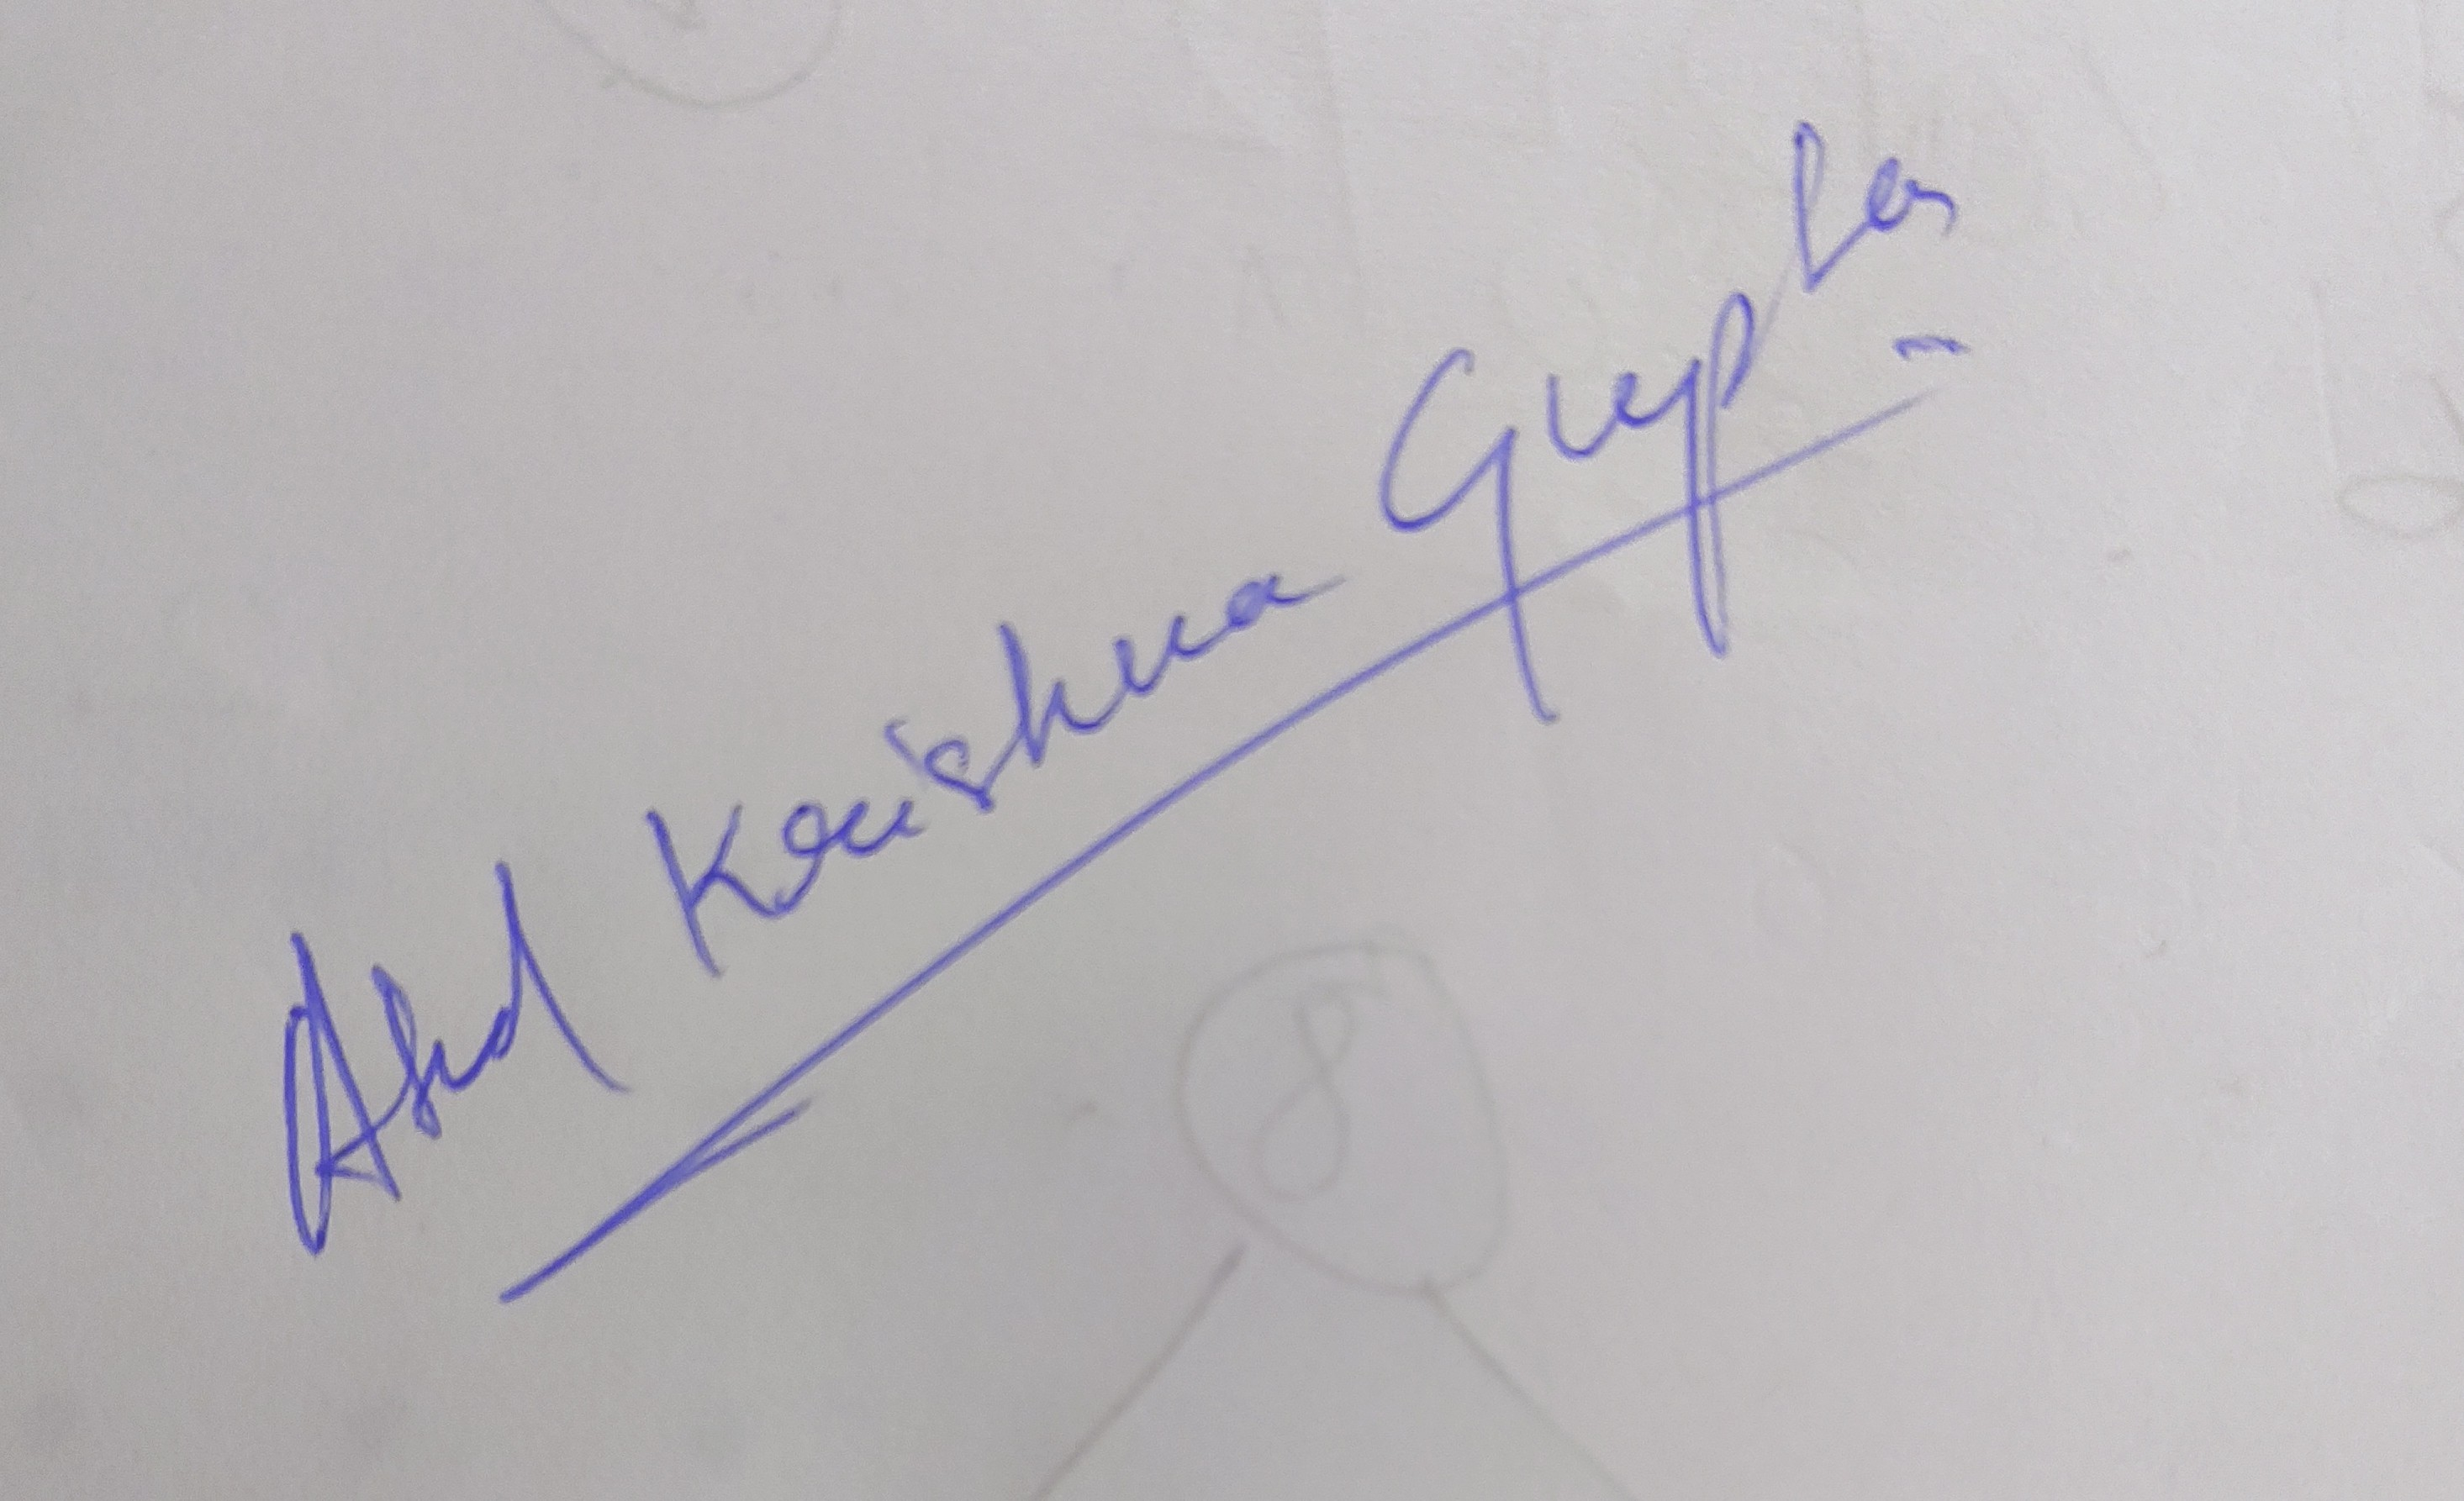 Krishna Gupta
8